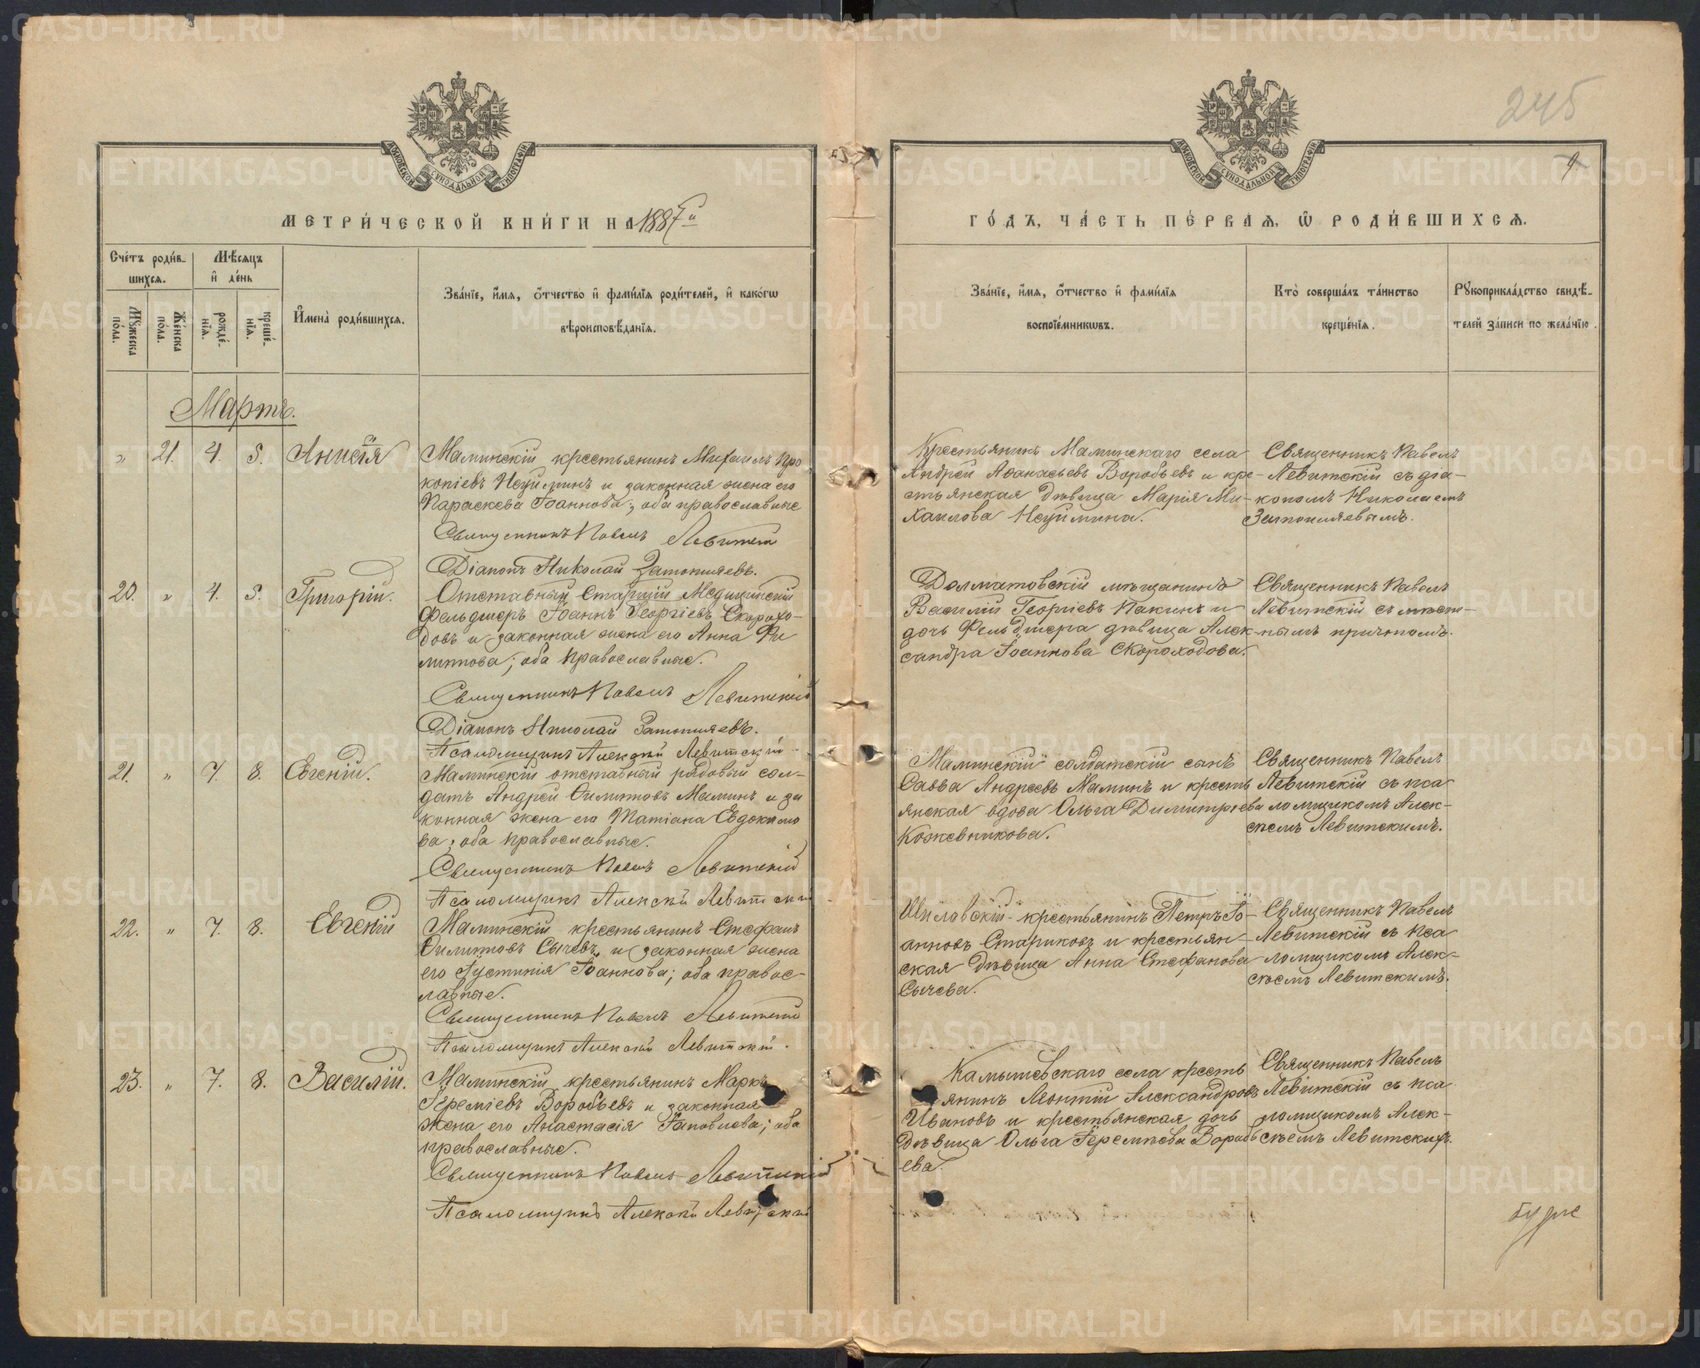 245
9
МЕТРИ́ЧЕСКОЙ КНИ́ГИ НА 1887й
ГО́ДЪ, ЧА́СТЬ ПЕ́РВАЯ, Ѡ҆ РОДИ́ВШИХСѦ.
Сче́тъ роди́в-
шихся.
Мѣ́сяцъ
и҆ де́нь
Му́жеска
по́ла.
Же́нска
по́ла.
рожде́-
нїя.
креще́-
нїя.
И҆мена̀ роди́вшихся.
Зва́нїе, и҆́мя, ѻ҆́тчество и҆ фами́лїя роди́телей, и҆ како́гѡ
вѣроисповѣ́данїя.
Зва́нїе, и҆́мя, ѻ҆́тчество и҆ фами́лїя
воспрїе́мникѡвъ.
Кто̀ соверша́лъ та́инство
креще́нїя.
Рꙋкоприкла́дство свидѣ́-
телей за́писи по жела́нїю.
Мартъ.
" 21. 4. 5. Анисія
Маминскій крестьянинъ Михаилъ Про
копіевъ Неуйминъ и законная жена его
Параскева Іоаннова; оба православные
Священникъ Павелъ Левитскій
Діаконъ Николай Затопляевъ.
Крестьянинъ Маминскаго села
Андрей Аѳанасьевъ Воробьевъ и кре-
стьянская дѣвица Марія Ми-
хаилова Неуймина.
Священникъ Павелъ
Левитскій съ діа-
кономъ Николаемъ
Затопляевымъ.
20. " 4. 5. Григорій.
Отставный Старшій Медицинскій
Фельдшеръ Іоаннъ Георгіевъ Скорохо-
довъ и законная жена его Анна Фи
липпова; оба православные.
Священникъ Павелъ Левитскій
Діаконъ Николай Затопляевъ.
Псаломщикъ Алексѣй Левитскій
Долматовскій мѣщанинъ
Василій Георгіевъ Пакинъ и
дочь Фельдшера дѣвица Алек-
сандра Іоаннова Скороходова.
Священникъ Павелъ
Левитскій съ мѣст-
нымъ причтомъ.
21. " 7. 8. Евгеній.
Маминскій отставный рядовый сол-
датъ Андрей Филиповъ Маминъ и за
конная жена его Татіана Евдокимо
ва; оба православные.
Священникъ Павелъ Левитскій
Псаломщикъ Алексѣй Левитскій
Маминскій солдатскій сынъ
Савва Андреевъ Маминъ и кресть
янская вдова Ольга Димитріева
Кожевникова.
Священникъ Павелъ
Левитскій съ пса
ломщикомъ Алек-
сѣемъ Левитскимъ.
22. " 7. 8. Евгеній
Маминскій крестьянинъ Стефанъ
Филиповъ Сычевъ и законная жена
его Іустинія Іоаннова; оба правос-
лавные.
Священникъ Павелъ Левитскій
Псаломщикъ Алексѣй Левитскій.
Шиловскій крестьянинъ Петръ Іо-
анновъ Стариковъ и крестьян-
ская дѣвица Анна Стефанова
Сычева.
Священникъ Павелъ
Левитскій съ пса
ломщикомъ Алек-
сѣемъ Левитскимъ.
23. " 7. 8. Василій.
Маминскій крестьянинъ Маркъ
Іереміевъ Воробьевъ и законная
жена его Анастасія Іаковлева; оба
православные.
Священникъ Павелъ Левитскій
Псаломщикъ Алексѣй Левитскій
Камышевскаго села кресть
янинъ Леонтій Александровъ
Ивановъ и крестьянская дочь
дѣвица Ольга Іереміева Воробь
ева.
Священникъ Павелъ
Левитскій съ пса
ломщикомъ Алек-
сѣемъ Левитскимъ.
METRIKI.GASO-URAL.RU